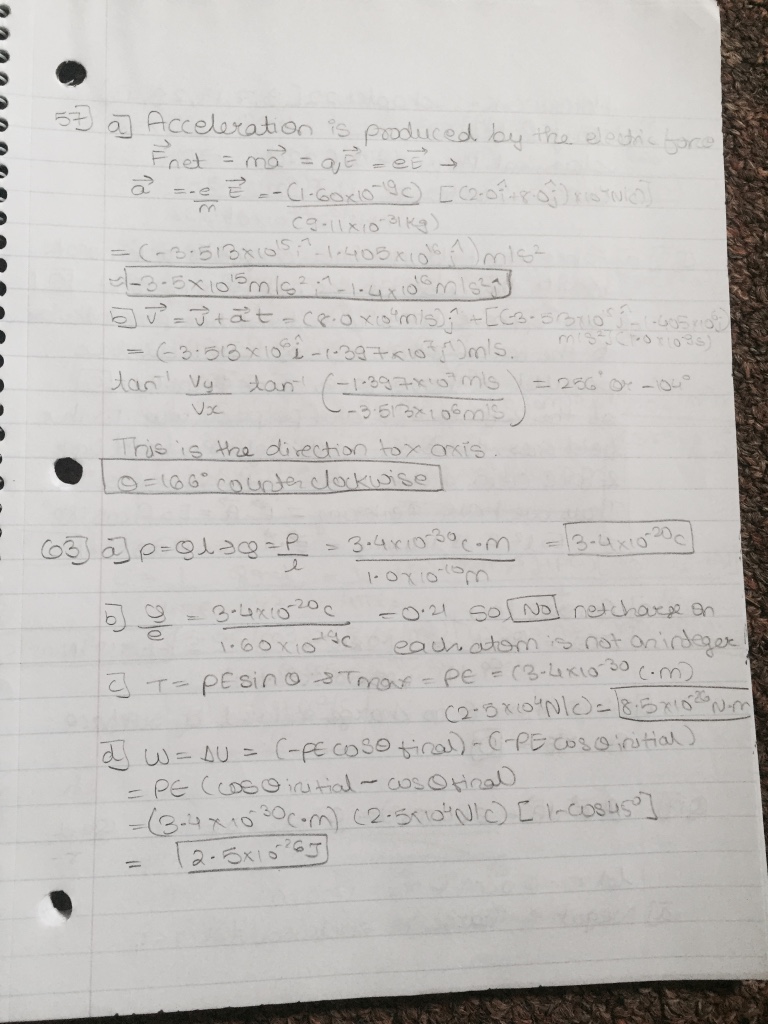 57] a] Acceleration is produced by the electric force
F⃗net = ma⃗ = qE⃗ = eE⃗ →
a⃗ = -e/m E⃗ = -(1.60x10^-19 C)/(9.11x10^-31 kg) [(2.0î+8.0ĵ)x10^4 N/C]
= (-3.513x10^15 î -1.405x10^16 ĵ) m/s²
= -3.5x10^15 m/s² î -1.4x10^16 m/s² ĵ
b] v⃗ = v⃗ + a⃗ t = (8.0x10^4 m/s)ĵ + [(-3.513x10^15 î -1.405x10^16 ĵ)
m/s²] (1.0x10^-9 s)
= (-3.513x10^6 î -1.397x10^7 ĵ) m/s.
tan^-1 Vy/Vx tan^-1 (-1.397x10^7 m/s / -3.513x10^6 m/s) = 256° or -104°
This is the direction to x axis.
θ = 166° counter clockwise
63] a] P = Ql → Q = P/l = 3.4x10^-30 C.m / 1.0x10^-10 m = 3.4x10^-20 C
b] Q/e = 3.4x10^-20 C / 1.60x10^-19 C = 0.21 so No net charge on
each atom is not an integer
c] T = PE sin θ → Tmax = PE = (3.4x10^-30 C.m)
(2.5x10^4 N/C) = 8.5x10^-26 N.m
d] W = ΔU = (-PE cos θ final) - (-PE cos θ initial)
= PE (cos θ initial - cos θ final)
= (3.4x10^-30 C.m) (2.5x10^4 N/C) [1-cos45°]
= 2.5x10^-26 J